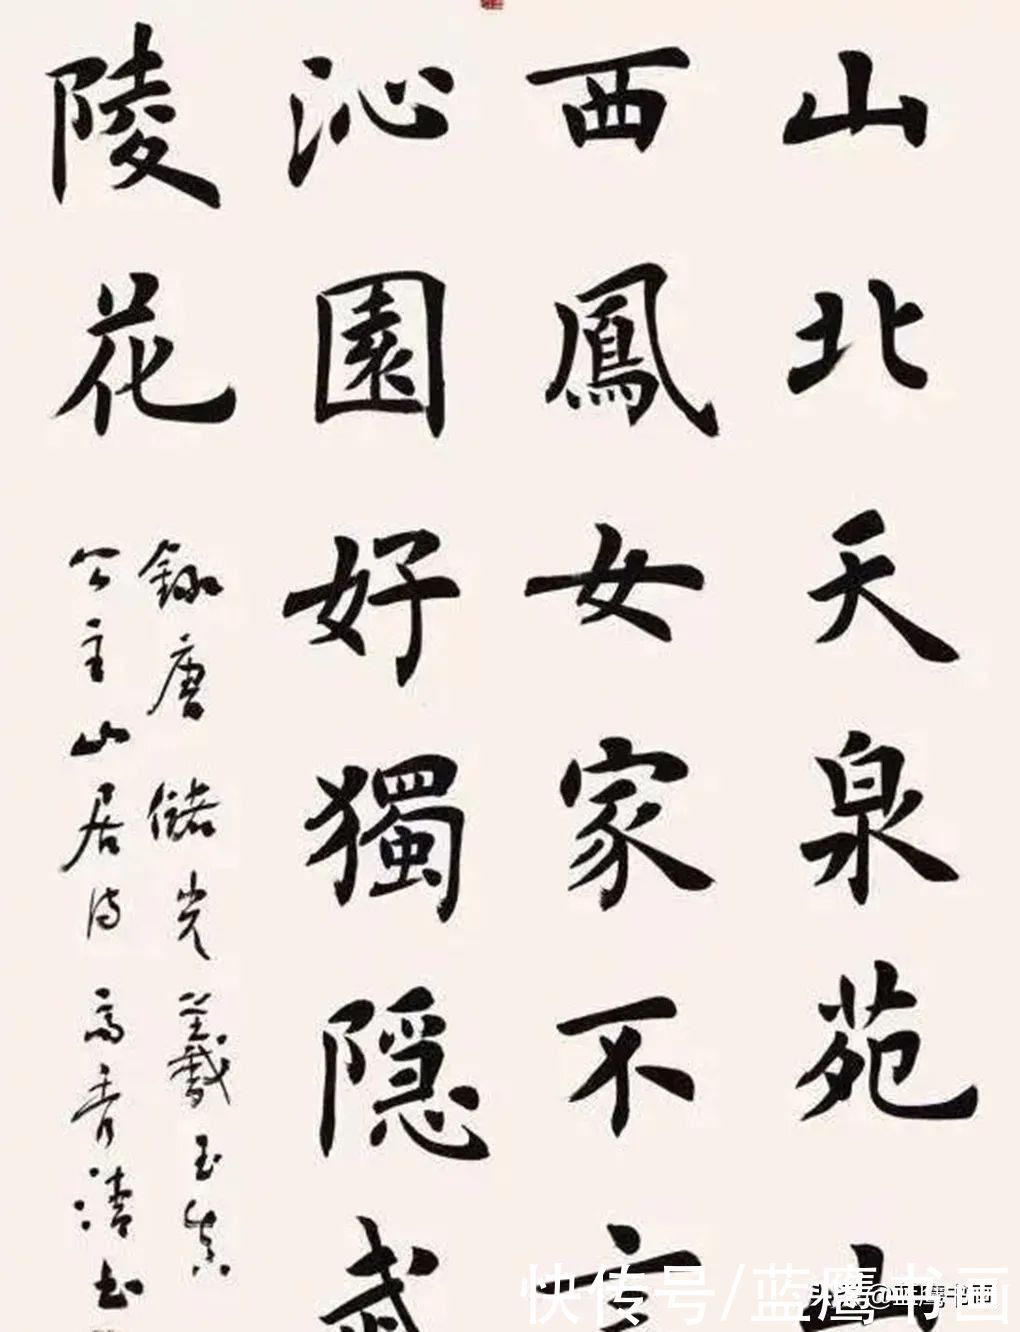 山北天泉苑山
西鳳女家不言
沁園好獨隱武
陵花
錄唐儲光羲玉真
公主山居诗 高秀清书
快传号/蓝鹰书画
头条@蓝鹰书画